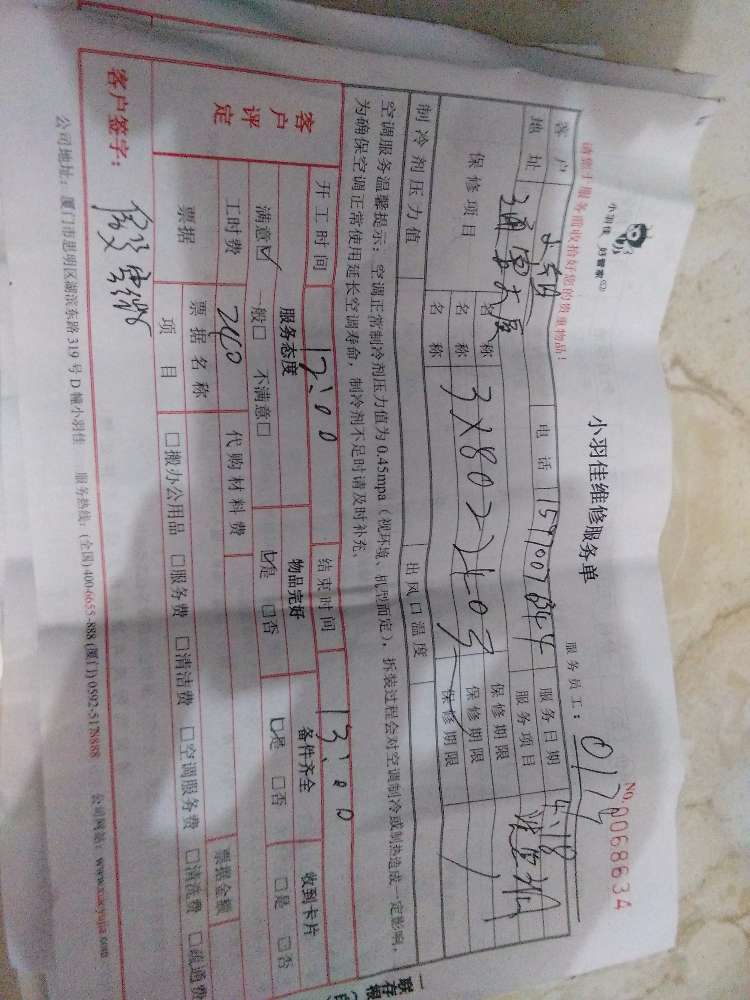 小羽佳 好管家
小羽佳维修服务单
NO.0068634
请您于服务前收拾好您的贵重物品！
服务员工：
客户 电话 服务日期 4.18
地址 通富大厦 服务项目
保修项目 名称 保修期限
名称 3×80=240元 保修期限
名称 保修期限
制冷剂压力值 出风口温度
空调服务温馨提示：空调正常制冷剂压力值为0.45mpa（视环境、机型而定），拆装过程会对空调制冷或制热造成一定影响，
为确保空调正常使用延长空调寿命，制冷剂不足时请及时补充。
开工时间 12:00 结束时间 13:00
客户评定 服务态度 物品完好 备件齐全 收到卡片
满意☑ 一般□ 不满意□ ☑是 □否 ☑是 □否 □是 □否
工时费 240 代购材料费
票据 票据名称 票据金额
项目 □搬办公用品 □服务费 □清洁费 □空调服务费 □清洗费 □疏通费
客户签字：
公司地址：厦门市思明区湖滨东路319号D幢小羽佳 服务热线：(全国)400-6655-888 (厦门)0592-5178888 公司网站：www.xiaoyujia.com
一联存根